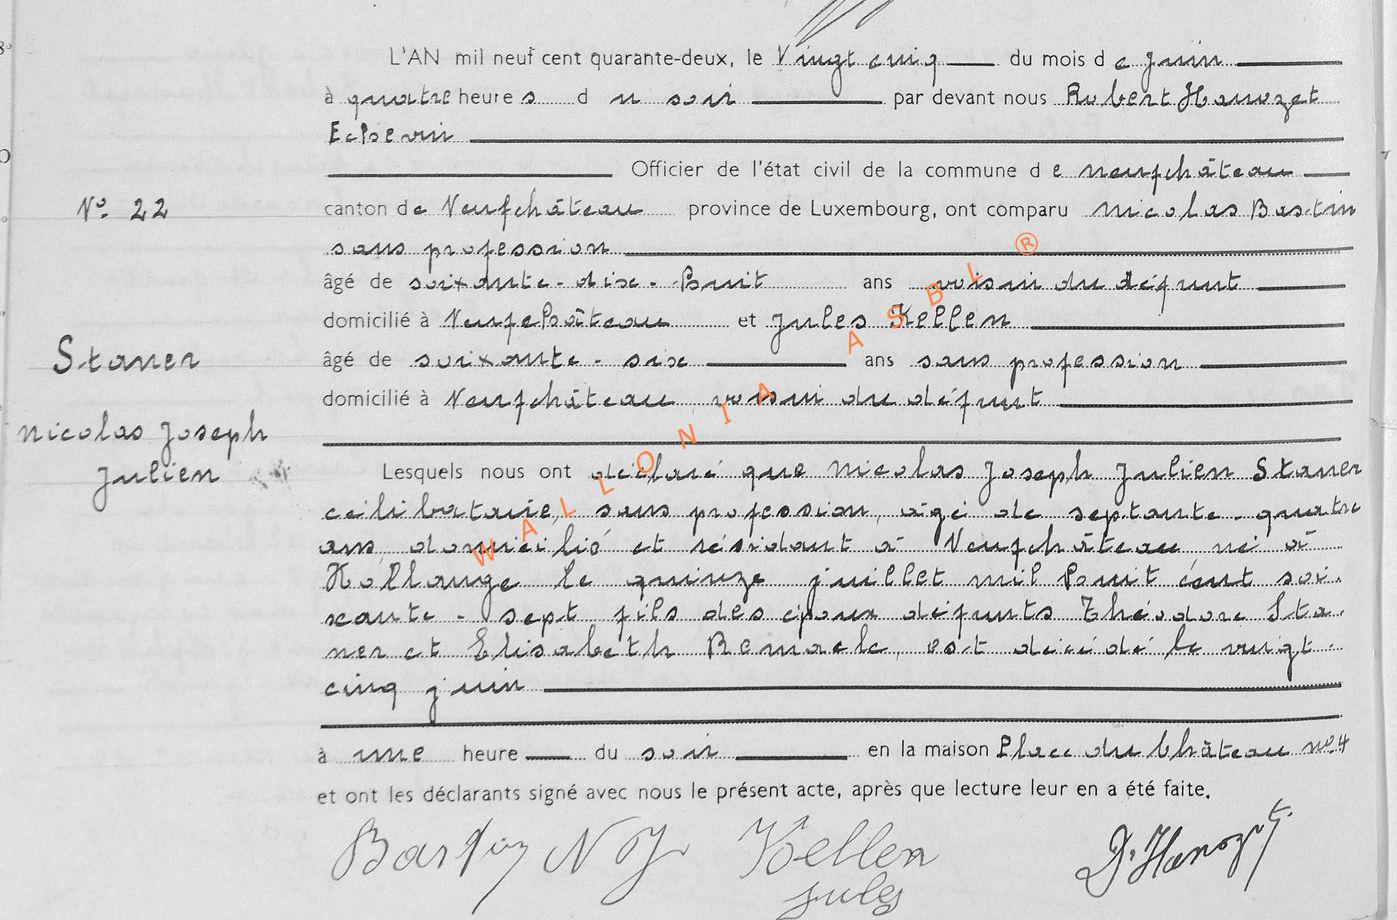 L'AN mil neuf cent quarante-deux, le Vingt cinq du mois de juin
à quatre heures du soir par devant nous Robert Hanozet
Echevin
Officier de l'état civil de la commune de Neufchâteau
N° 22
canton de Neufchâteau province de Luxembourg, ont comparu Nicolas Bastin
sans profession
âgé de soixante-dix-huit ans voisin du défunt
domicilié à Neufchâteau et Jules Kellen
Staner
âgé de soixante-six ans sans profession
domicilié à Neufchâteau voisin du défunt
Nicolas Joseph
Julien
Lesquels nous ont déclaré que Nicolas Joseph Julien Staner
célibataire, sans profession, âgé de septante-quatre
ans domicilié et résidant à Neufchâteau né à
Hollange le quinze juillet mil huit cent soi-
xante-sept fils des époux défunts Théodore Sta-
ner et Elisabeth Remacle, est décédé le vingt-
cinq juin
à une heure du soir en la maison Place du Château n°4
et ont les déclarants signé avec nous le présent acte, après que lecture leur en a été faite.
Bastin NJ Kellen Jules Dr Hanozet
WALLONIA ASBL ®